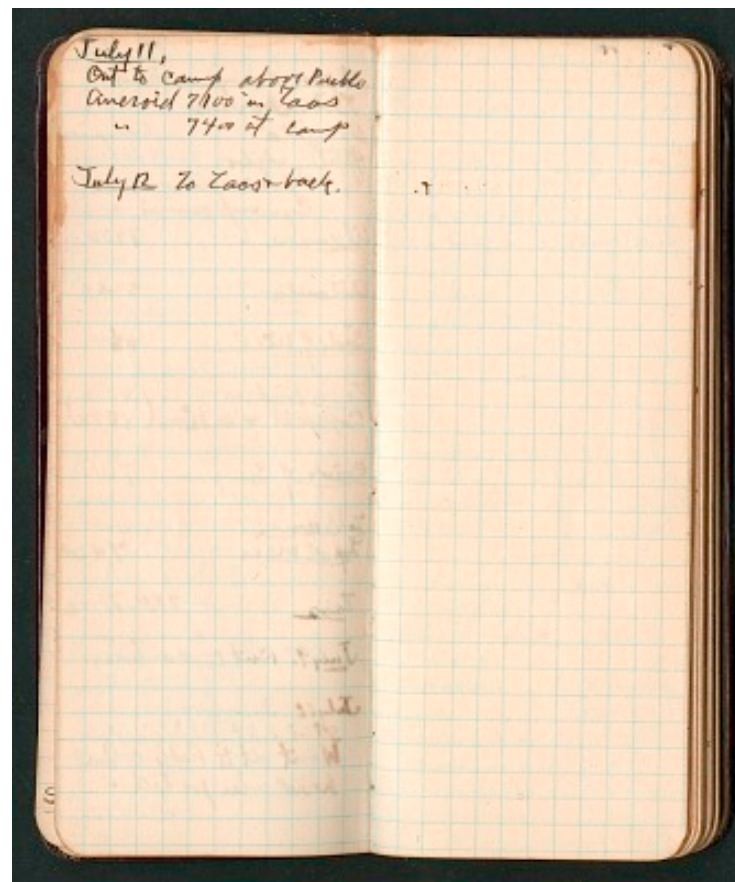 July 11,
Out to camp above Pueblo
Aneroid 7100 in Taos
" 7400 at camp
July 12 To Taos + back.
S